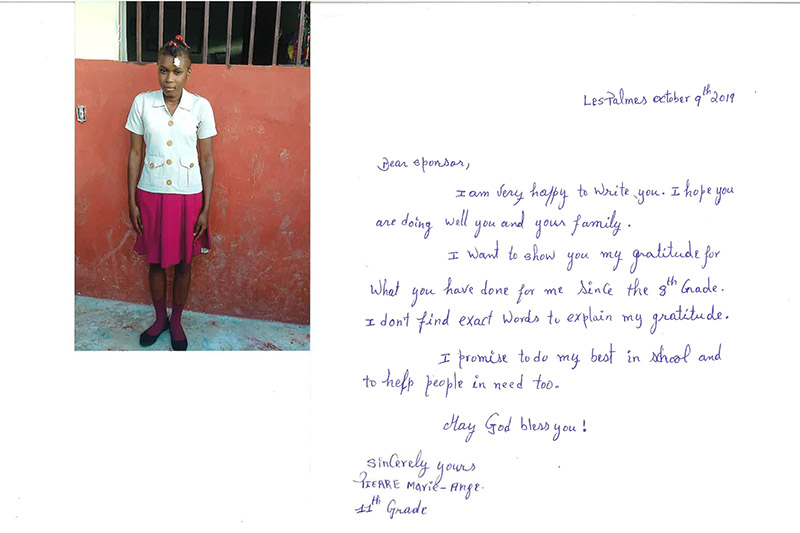 Les-Palmes october 9th 2019
Dear sponsor,
I am very happy to write you. I hope you
are doing well you and your family.
I want to show you my gratitude for
what you have done for me since the 8th Grade.
I don't find exact words to explain my gratitude.
I promise to do my best in school and
to help people in need too.
May God bless you!
Sincerely yours
PIERRE Marie-Ange.
11th Grade